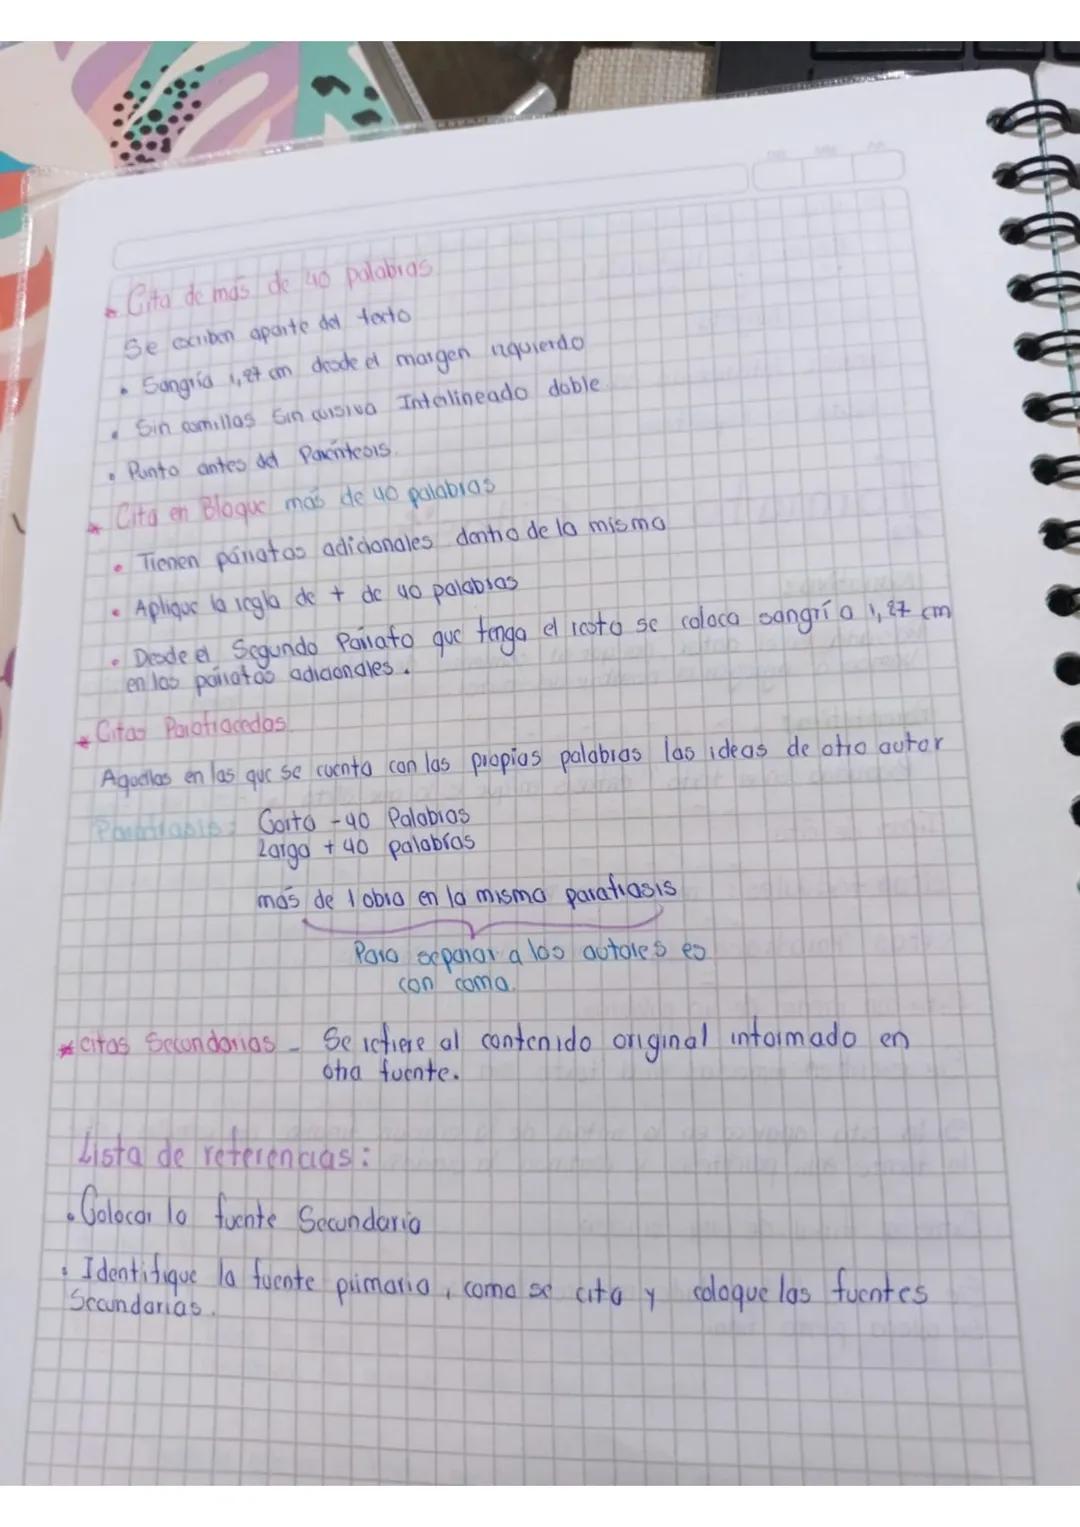 * Cita de más de 40 palabras
Se escriben aparte del texto
• Sangría 1,27 cm desde el margen izquierdo
• Sin comillas Sin cursiva Interlineado doble
• Punto antes del Paréntesis.
* Cita en Bloque más de 40 palabras
• Tienen párrafos adicionales dentro de la misma
• Aplique la regla de + de 40 palabras
• Desde el Segundo Párrafo que tenga el resto se coloca sangría 1,27 cm
en los párrafos adicionales.
* Citas Parafraceadas
Aquellas en las que se cuenta con las propias palabras las ideas de otro autor
Parafrasis: Corta -40 Palabras
Larga + 40 palabras
más de 1 obra en la misma parafrasis
Para separar a los autores es
con coma.
* citas Secundarias - Se refiere al contenido original informado en
otra fuente.
Lista de referencias:
• Colocar la fuente Secundaria
• Identifique la fuente primaria, como se cita y coloque las fuentes
Secundarias.